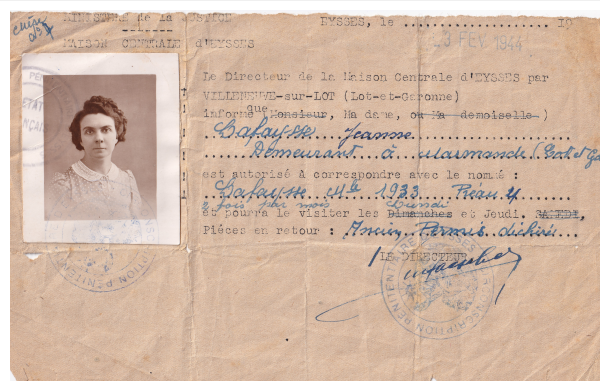 MINISTÈRE de la JUSTICE
EYSSES, le .................... 19
MAISON CENTRALE d'EYSSES
23 FEV 1944
Le Directeur de la Maison Centrale d'EYSSES par
VILLENEUVE-sur-LOT (Lot-et-Garonne)
informe que Monsieur, Madame, ou Ma demoiselle)
Lafaysse Jeanne
Demeurant à Marmande (Lot et Ga
est autorisé à correspondre avec le nommé :
Lafaysse Mle 1933 Préau 4
2 fois par mois Lundi
et pourra le visiter les Dimanches et Jeudi. SAMEDI,
Piéces en retour : Ancien Permis déchiré
LE DIRECTEUR
ETAT